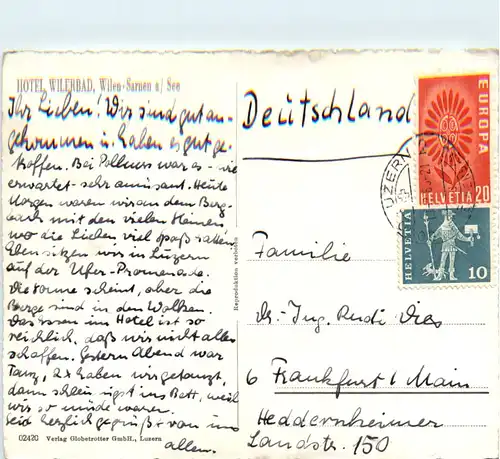 HOTEL WILERBAD, Wilen-Sarnen a/ See
Ihr Lieben! Wir sind gut an-
gekommen u. haben es gut ge-
troffen. Bei war es - wie
erwartet - sehr amüsant. Heute
Morgen waren wir an dem Berg-
bach mit den vielen Steinen
wo die Lieben viel Spaß hatten
Eben sitzen wir in Luzern
auf der Ufer-Promenade.
Die Sonne scheint, aber die
Berge sind in den Wolken.
Das Essen im Hotel ist so
reichlich, daß wir nicht alles
schaffen. Gestern Abend war
Tanz, 2x haben wir getanzt,
dann schleunigst ins Bett, weil
wir so müde waren.
Seid herzlich gegrüßt von uns
allen.
02420 Verlag Globetrotter GmbH., Luzern
Reproduktion verboten
Deutschland
EUROPA
HELVETIA 20
LUZERN
HELVETIA
10
Familie
Dr.-Ing. Rudi
6 Frankfurt/Main
Heddernheimer
Landstr. 150